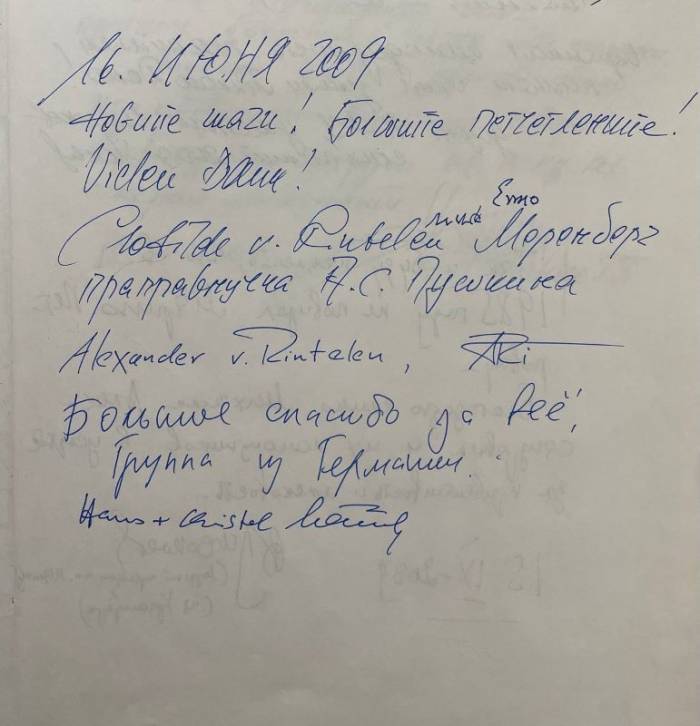 16. ИЮНЯ 2009
Новите шаги! Большите петчетлените!
Vielen Dank!
Clotilde v. Rintelen
Меренберг
праправнучка А.С. Пушкина
Alexander v. Rintelen,
Большое спасибо за всё!,
Группа из Германии.
Hans + Christel